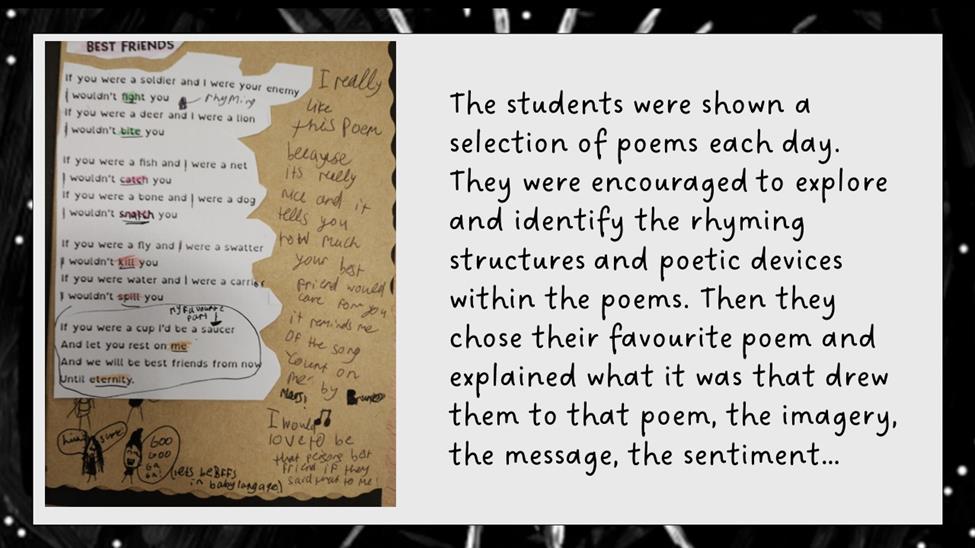 BEST FRIENDS
If you were a soldier and I were your enemy
I wouldn't fight you
rhyming
If you were a deer and I were a lion
I wouldn't bite you
If you were a fish and I were a net
I wouldn't catch you
If you were a bone and I were a dog
I wouldn't snatch you
If you were a fly and I were a swatter
I wouldn't kill you
If you were water and I were a carrier
I wouldn't spill you
my favourite
part
If you were a cup I'd be a saucer
And let you rest on me
And we will be best friends from now
Until eternity.
I really
like
this Poem
because
its really
nice and it
tells you
how much
your best
friend would
care for you!
it reminds me
of the song
Count on
me by
I would
love to be
that persons best
friend if they
said that to me!
sure
Goo
Goo
Ga
Ga!
(lets be BFFS
in baby langage)
The students were shown a
selection of poems each day.
They were encouraged to explore
and identify the rhyming
structures and poetic devices
within the poems. Then they
chose their favourite poem and
explained what it was that drew
them to that poem, the imagery,
the message, the sentiment...